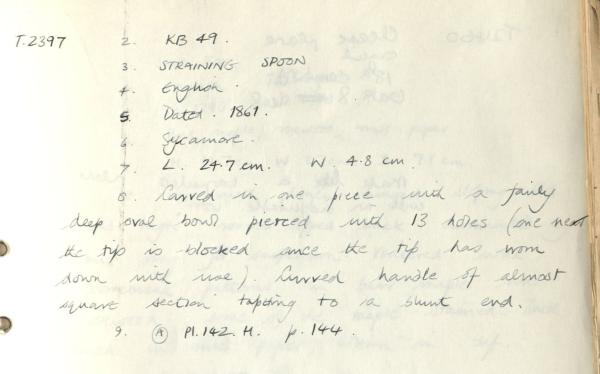 T.2397 2. KB 49.
3. STRAINING SPOON
4. English.
5. Dated. 1861.
6. Sycamore.
7. L. 24.7 cm. W. 4.8 cm.
8. Carved in one piece with a fairly
deep oval bowl pierced with 13 holes (one near
the tip is blocked since the tip has worn
down with use). Curved handle of almost
square section tapering to a blunt end.
9. Ⓐ Pl. 142. H. p. 144.